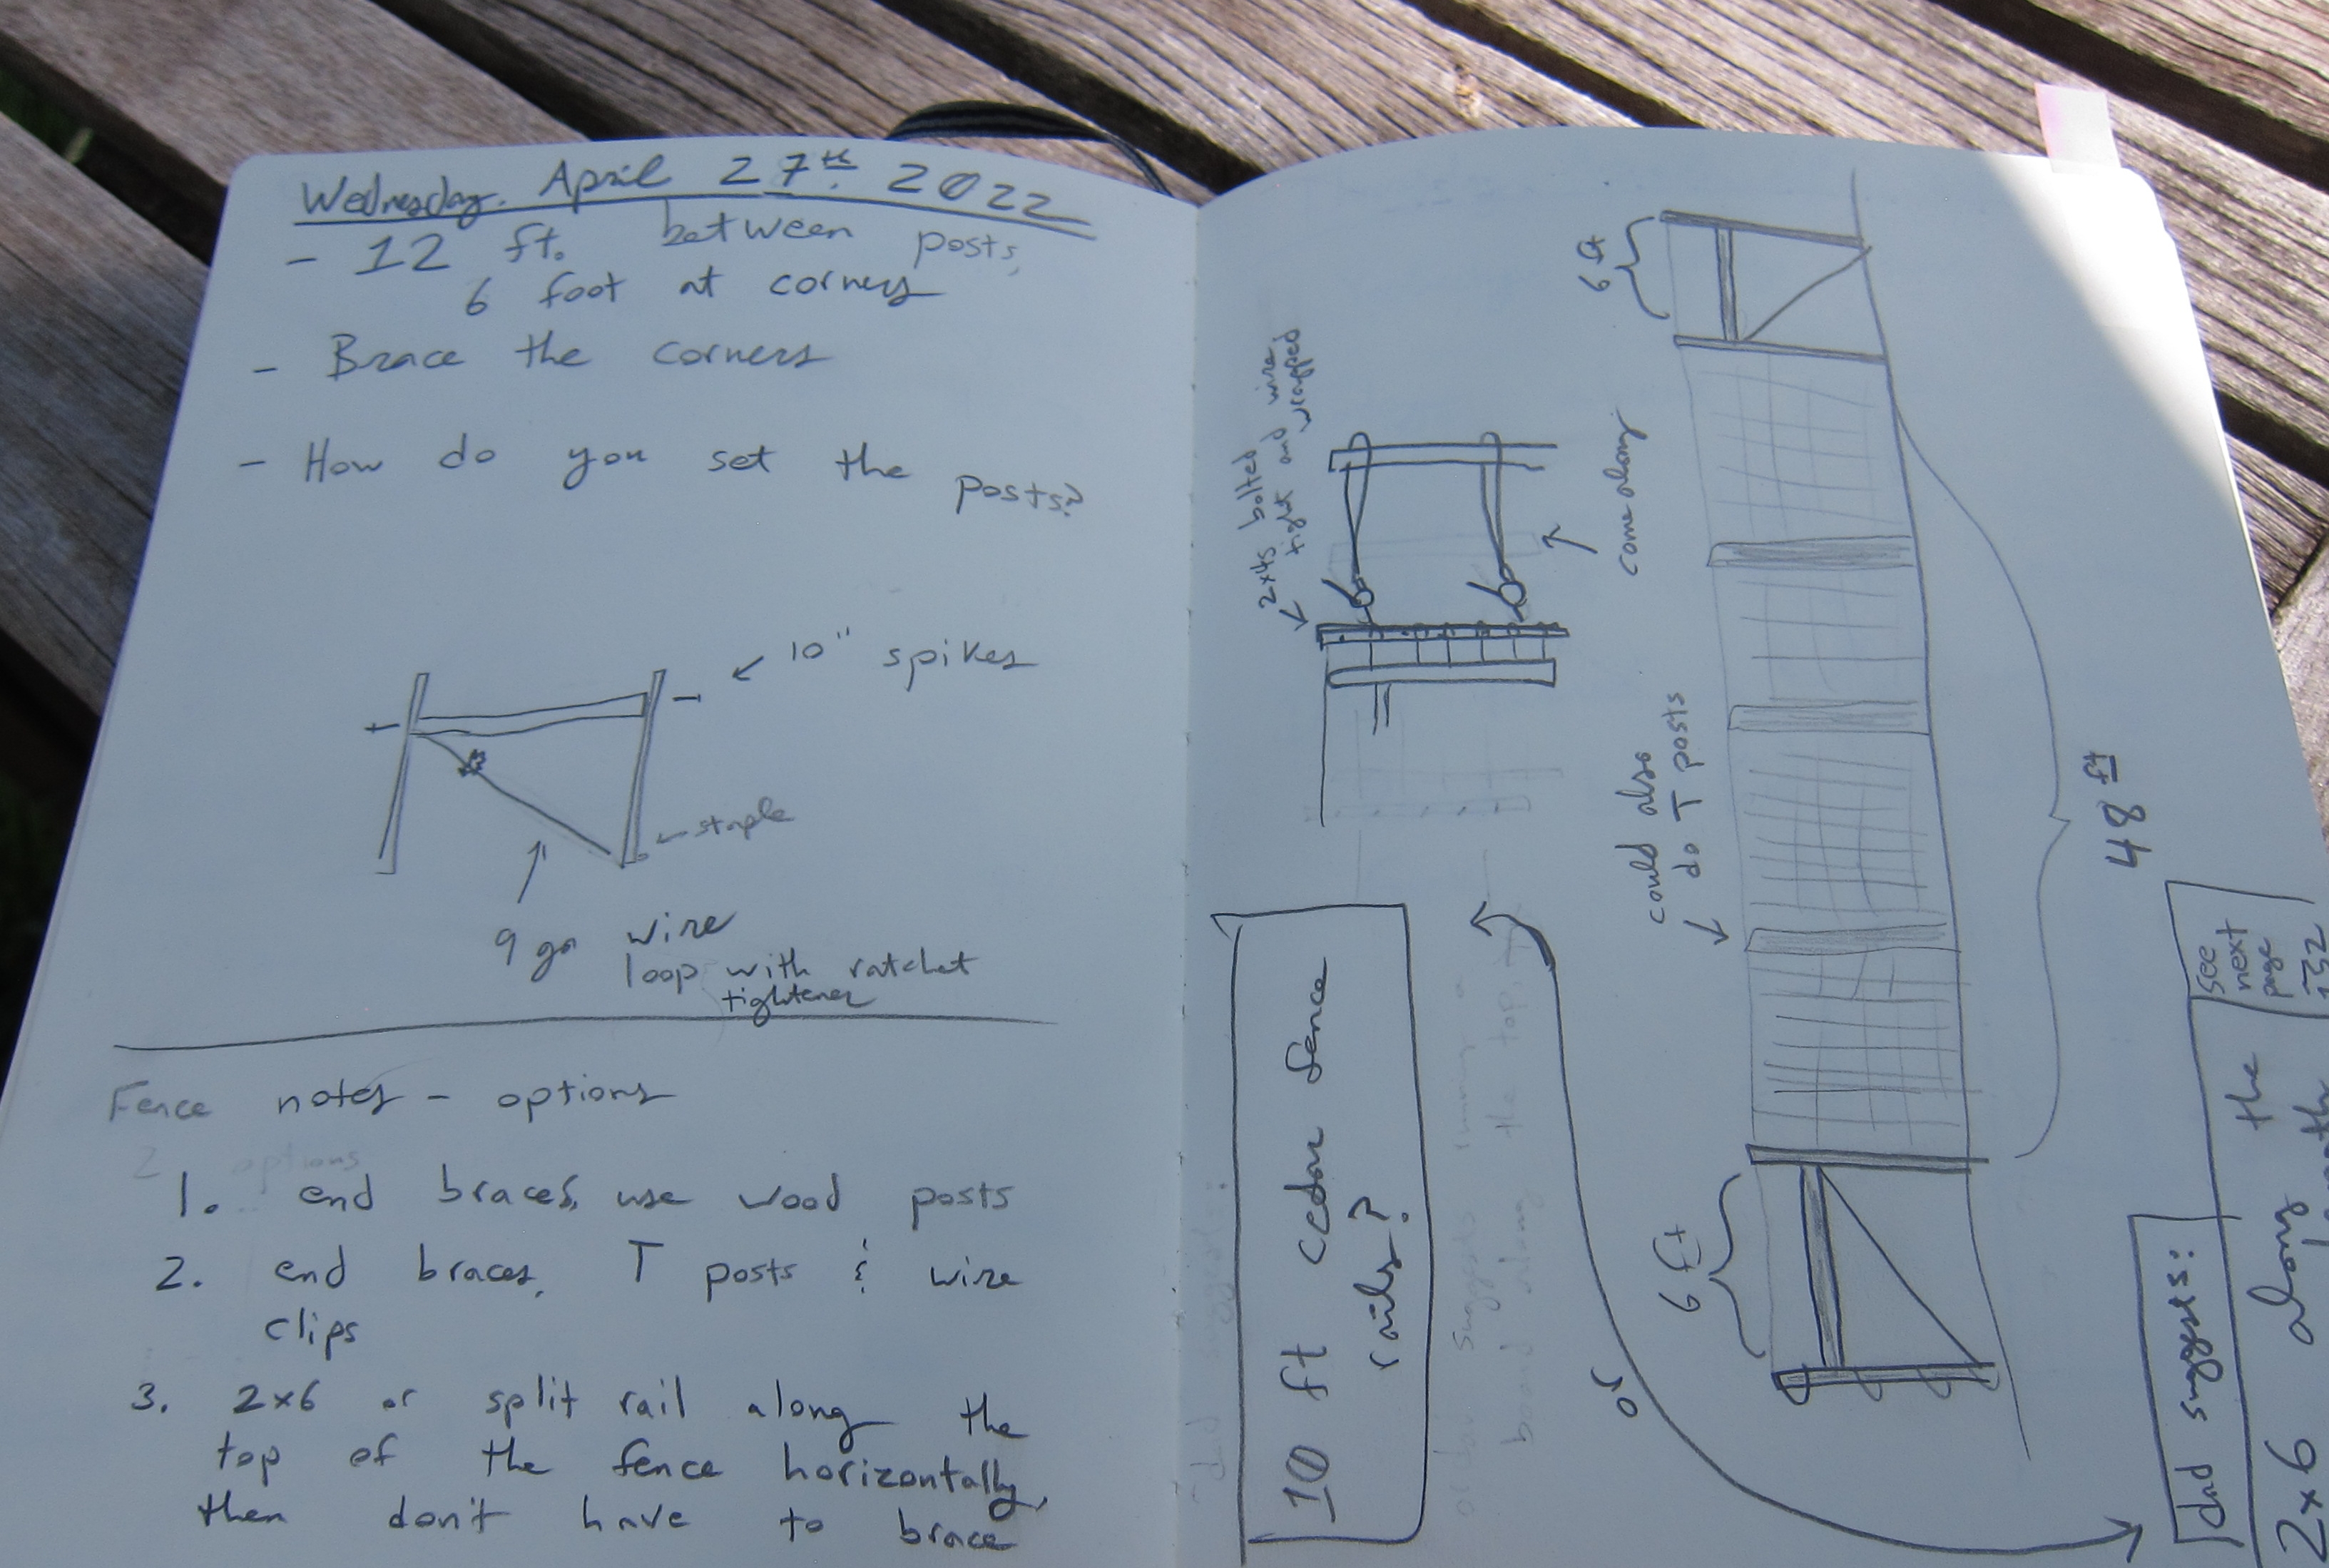 Wednesday. April 27th. 2022
- 12 ft. between posts,
6 foot at corners
- Brace the corners
- How do you set the posts?
← 10" spikes
← staple
9 ga wire
loop with ratchet
tightener
Fence notes - options
2 options
1. end braces, use wood posts
2. end braces, T posts & wire
clips
3. 2x6 or split rail along the
top of the fence horizontally,
then don't have to brace
2x4s bolted
tight and wire
wrapped
come along
6 ft
could also
do T posts
48 ft
6 ft
10 ft cedar fence
rails?
or
dad suggests:
2x6 along the
see
next
page